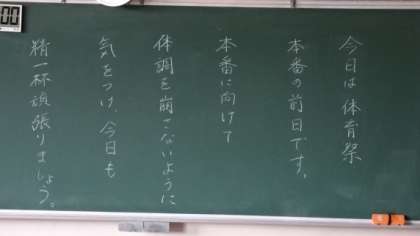 今日は体育祭
本番の前日です。
本番に向けて
体調を崩さないように
気をつけ、今日も
精一杯頑張りましょう。
00